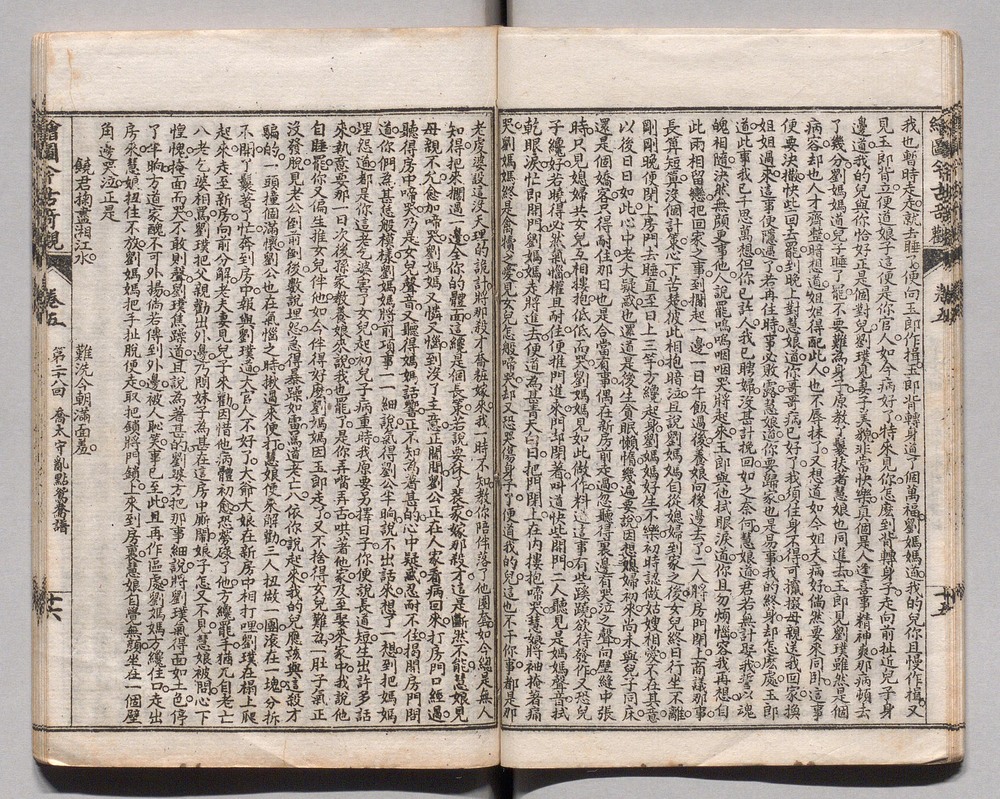 我也暫時走走就去睡了便向玉郎作揖玉郎背轉身道了個萬福劉媽媽道我的兒你且慢作揖又
見玉郎背立便道娘子這便是你官人如今病好了特來見你怎麼到背轉身子走向前扯近兒子身
邊道我的兒與你恰好正是個對兒劉璞見妻子美貌非常快樂真個是人逢喜事精神爽那病頓去
了幾分劉媽媽道兒子睡了罷不要難為身子原教丫鬟扶著慧娘也同進去玉郎見劉璞雖然是個
病容却也人才齊整暗想道姐姐得配此人也不辱抹了又想道如今姐夫病好倘然要來同卧這事
便要決撒快些回去罷到晚上對慧娘道你哥哥病已好了我須住身不得可攛掇母親送我回家換
姐姐過來這事便隱過了若再住時事必敗露慧娘道你要歸家也是易事我的終身却怎麼處玉郎
道此事我已千思萬想但你已許人我已聘婦沒甚計挽回如之奈何慧娘道君若無計娶我誓以魂
魄相隨決然無顏更事他人說罷嗚嗚咽咽哭將起來玉郎與他拭眼淚道你且勿煩惱容我再想自
此兩相留戀把回家之事到擱起一邊一日午飯過後養娘向後邊去了二人將房門閉上商議那事
長算短算沒個計策心下苦楚彼此相抱暗泣且說劉媽媽自從媳婦到家之後女兒終日行坐不離
剛剛晚便閉上房門去睡直至日上三竿方纔起身劉媽媽好生不樂初時認做姑嫂相愛不在其意
以後日日如此心中老大疑惑也還道是後生貪眠懶惰幾遍要說因想媳婦初來尚未與兒子同床
還是個嬌客只得耐住那日也是合當有事偶在新房前走過忽聽得裏邊有哭泣之聲向壁縫中張
時只見媳婦共女兒互相摟抱低低而哭劉媽媽見如此做作料道這事有些蹊蹺欲待發作又恐兒
子纔好若知得必然氣惱權且耐住便推門進來門却閉著叫道快些開門二人聽見是媽媽聲音拭
乾眼淚忙即開門劉媽媽走將進去便道為甚青天白日把門閉上在內摟抱啼哭慧娘將袖掩著痛
哭
老虎婆設這沒天理的詭計將那殺才喬粧嫁來我一時不知教你陪伴落了他圈套如今總是無人
知得把來擱過一邊全你的體面這纔是個長策若說要休了裴家嫁那殺才這是斷然不能慧娘見
母親不允愈加啼哭劉媽媽又憐又惱到沒了主意正鬧間劉公正在人家看病回來打房門口經過
聽得房中啼哭乃是女兒聲音又聽得媽媽話響正不知為著甚的心中疑惑忍耐不住揭開房門問
道你們為甚恁般模樣劉媽媽將前項事一一細說氣得劉公半晌說不出話來想了一想到把媽媽
埋怨道都是你這老乞婆害了女兒起初兒子病重時我原要另擇日子你便說長道短生出許多話
來執意要那一日次後孫家教養娘來說我也罷了是你弄嘴弄舌哄著他家及至娶來家中我說他
自睡罷你又偏生推女兒伴他如今伴得好麼劉媽媽因玉郎走了又不捨得女兒難為一肚子氣正
沒發脫見老公倒前倒後數說埋怨急得暴躁如雷罵道老亡八依你說起來我的兒應該與這殺才
騙的一頭撞個滿懷劉公也在氣惱之時揪過來便打慧娘便來解勸三人扭做一團滾在一塊分拆
不開丫鬟著了忙奔到房中報與劉璞道大官人不好了大爺大娘在新房中相打哩劉璞在榻上爬
起來走至新房向前分解老夫妻見兒子來勸因惜他病體初愈恐勞碌了他方纔罷手猶兀自老亡
八老乞婆相罵劉璞把父親勸出外邊乃問妹子為甚在這房中厮鬧娘子怎又不見慧娘被問心下
惶愧掩面而哭不敢則聲劉璞焦躁道且說為著甚的劉婆方把那事細說將劉璞氣得面如土色停
了半晌方道家醜不可外揚倘若傳到外邊被人恥笑事已至此且再作區處劉媽媽方纔住口走出
房來慧娘掙住不放劉媽媽把手扯脫便走取把鎖將門鎖上來到房裏慧娘自覺無顏坐在一個壁
角邊哭泣正是
饒君掬盡湘江水
難洗今朝滿面羞
繪圖今古奇觀
卷五
第二八回 喬太守亂點鴛鴦譜
十六
十五